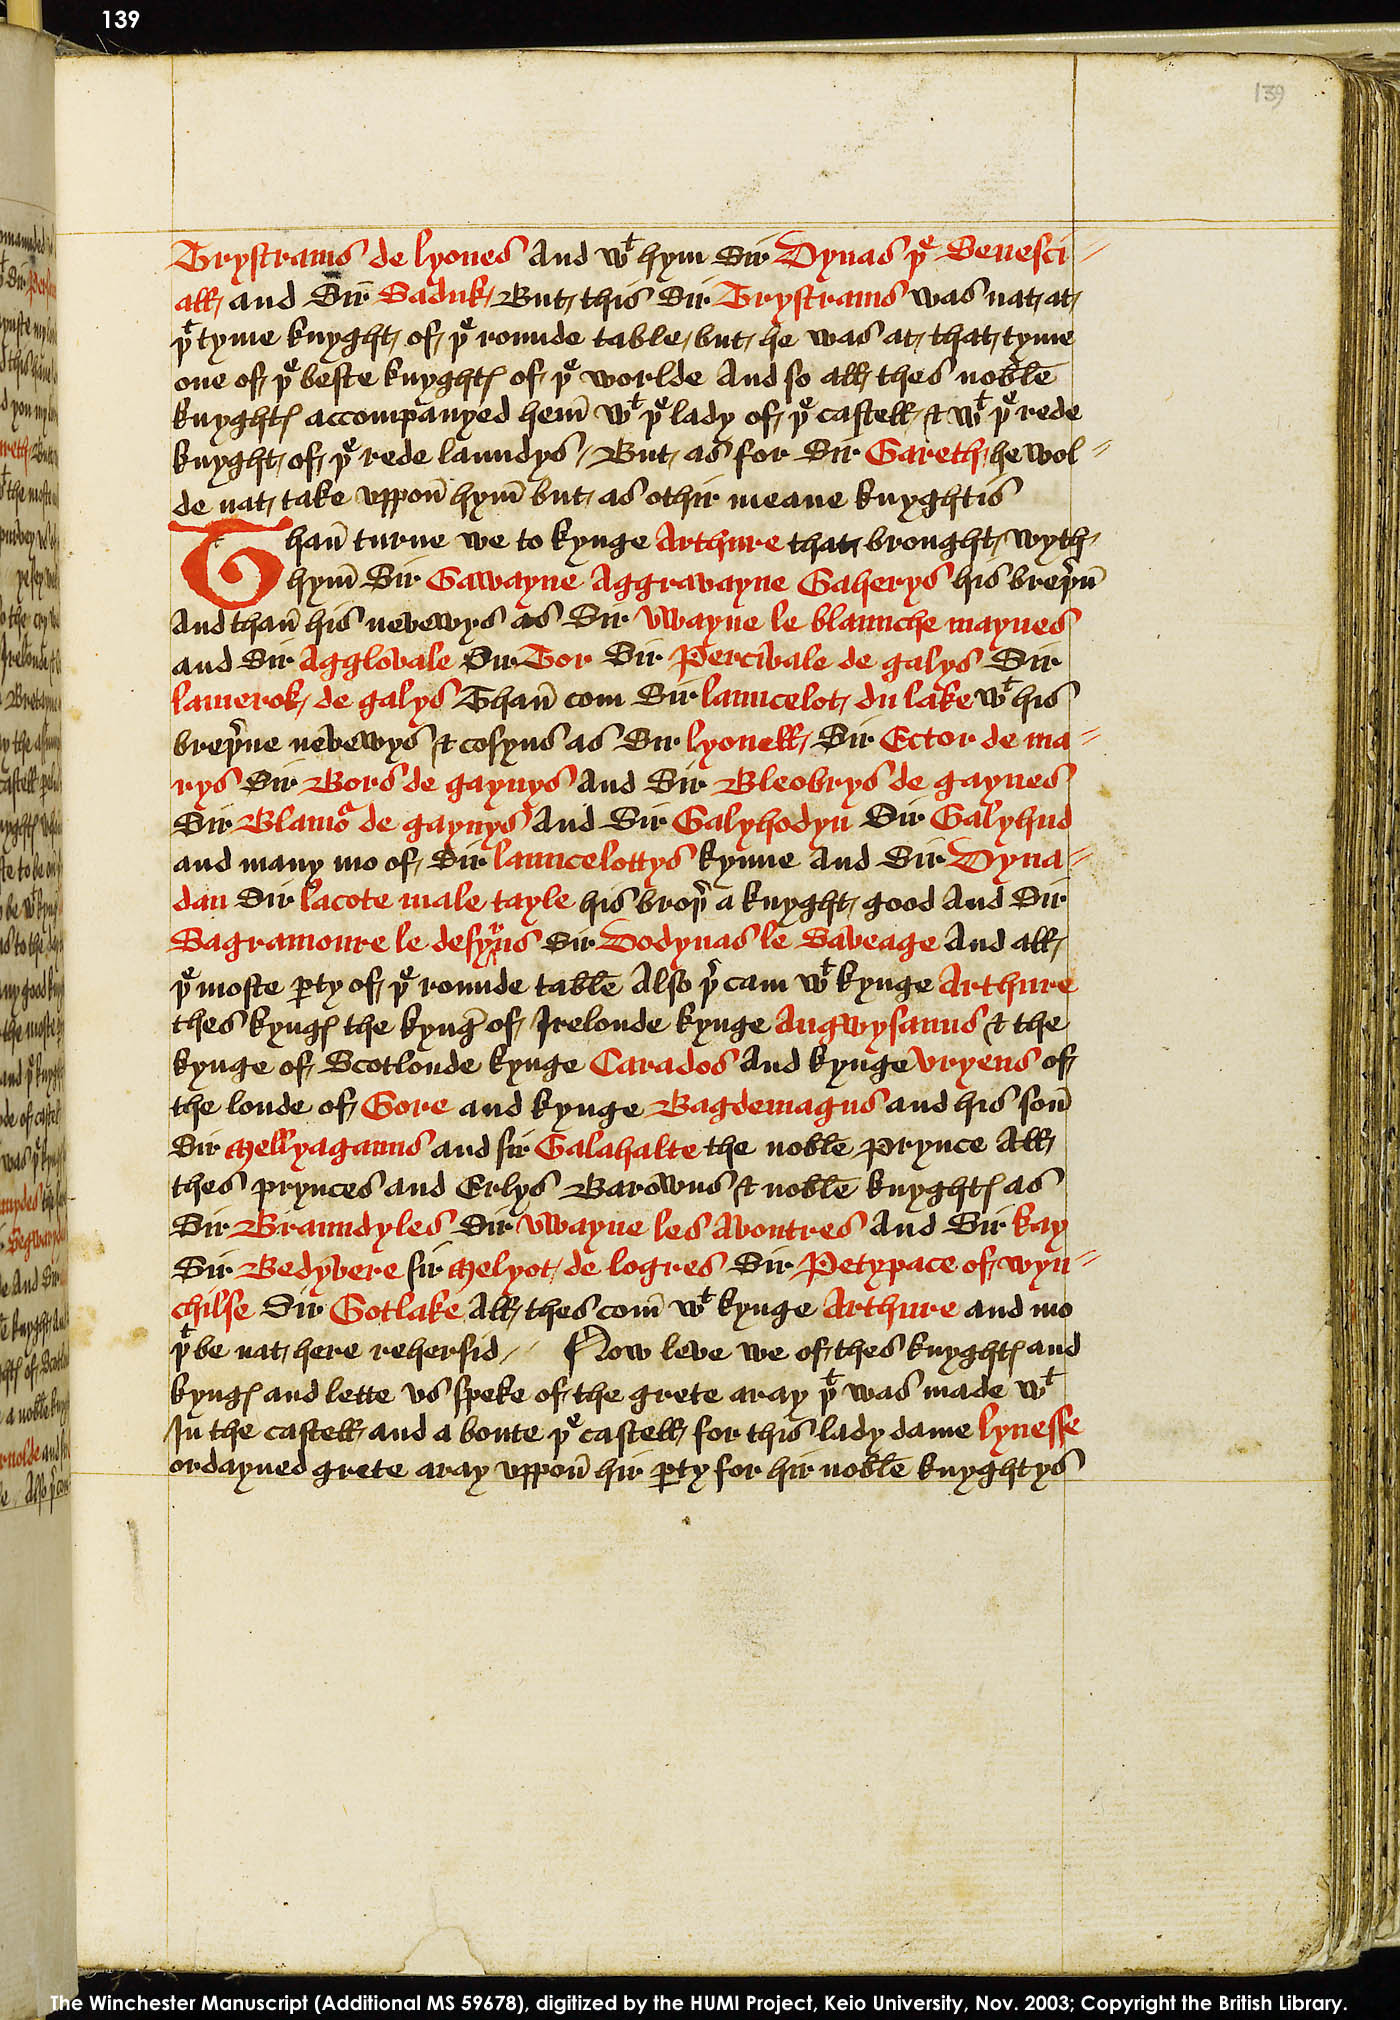 139
139
Trystrams de lyones And wᵗ hym Sir Dynas þᵉ Senesci⸗
all and Sir Saduk But this Sir Trystrams was nat at
þᵗ tyme knyght of þᵉ rounde table but he was at that tyme
one of þᵉ beste knyghtꝭ of þᵉ worlde And so all thes noble
knyghtꝭ accompanyed hem̄ wᵗ þᵉ lady of þᵉ castell & wᵗ þᵉ rede
knyght of þᵉ rede laundys / But as for Sir Gareth he wol⸗
de nat take vppon̄ hym̄ but as othir meane knyghtis
Than̄ turne we to kynge Arthure that brought wyth
hym̄ Sir Gawayne Aggravayne Gaherys his breþⁱn̄
And than̄ his nevewys as Sir Vwayne le blaunche maynes
and Sir Agglovale Sir Tor Sir Percivale de galys Sir
lamerok de galys Than̄ com Sir launcelot du lake wᵗ his
breþⁱne nevewys & cosyns as Sir lyonell Sir Ector de ma⸗
rys Sir Bors de gaynys And Sir Bleobrys de gaynes
Sir Blamoʳ de gaynys And Sir Galyhodyn Sir Galyhud
and many mo of Sir launcelottys kynne And Sir Dyna⸗
dan Sir lacote male tayle his broþⁱ a knyght good And Sir
Sagramoure le desyrus Sir Dodynas le Saveage And all
þᵉ moste ꝑty of þᵉ rounde table Also þⁱ cam wᵗ kynge Arthure
thes kyngꝭ the kynḡ of Irelonde kynge Angwysauns & the
kynge of Scotlonde kynge Carados And kynge Vryens of
the londe of Gore and kynge Bagdemagus and his son̄
Sir Mellyaganus and sir Galahalte the noble prynce All
thes prynces and Erlys Barowns & noble knyghtꝭ as
Sir Braundyles Sir Vwayne les Avoutres And Sir kay
Sir Bedyvere sir Melyot de logres Sir Petypace of wyn⸗
chilse Sir Gotlake All thes com̄ wᵗ kynge Arthure and mo
þᵗ be nat here rehersid / Now leve we of thes knyghtꝭ and
kyngꝭ and lette vs speke of the grete aray þᵗ was made wᵗ
In the castell and a boute þᵉ castell for this lady dame lynesse
ordayned grete aray vppon̄ hir ꝑty for hir noble knyghtys
The Winchester Manuscript (Additional MS 59678), digitized by the HUMI Project, Keio University, Nov. 2003; Copyright the British Library.